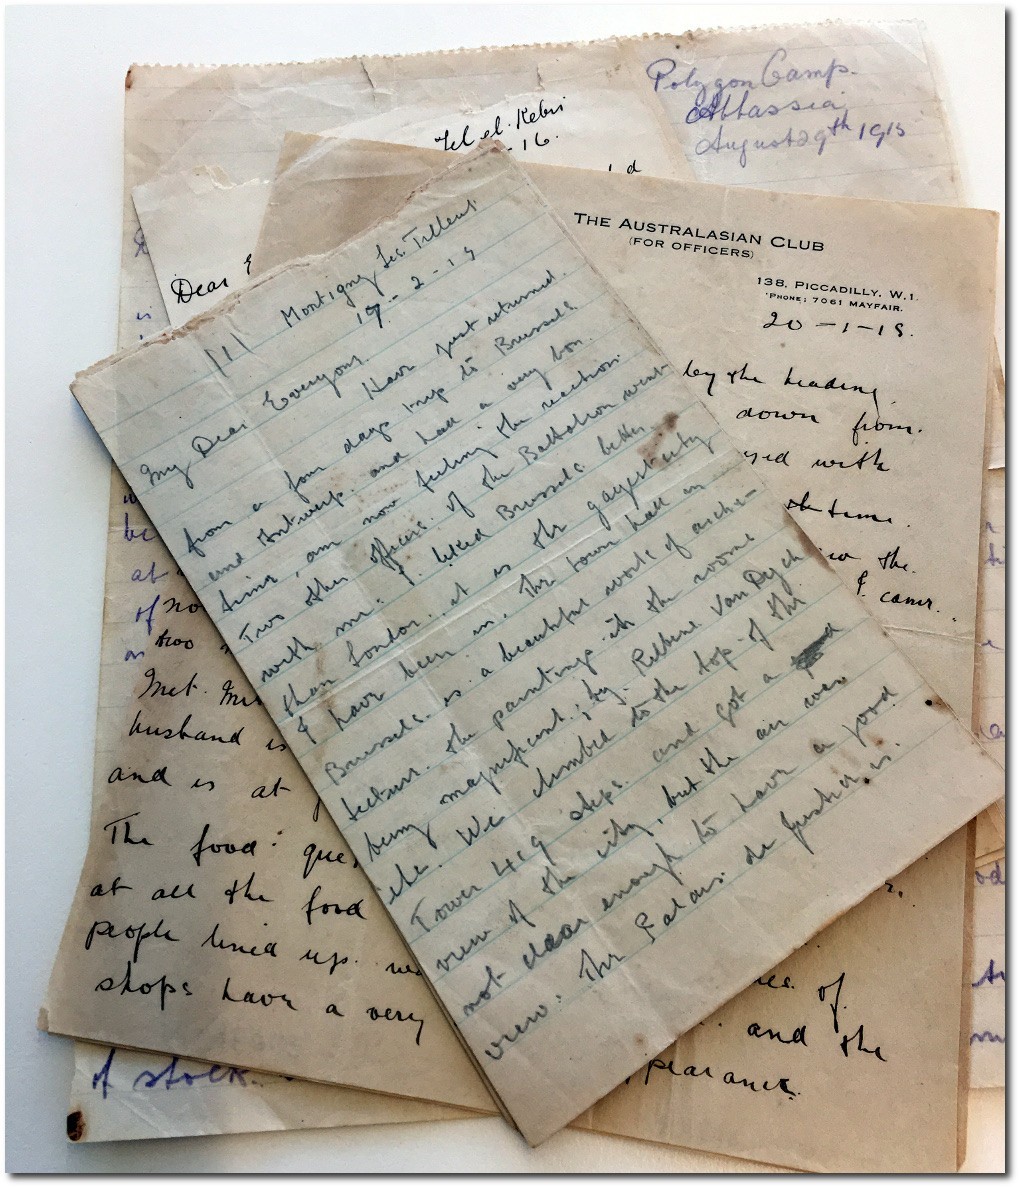 Polygon Camp.
Abbassia,
August 29th 1915
Tel el. Kebir
-16.
Dear E
THE AUSTRALASIAN CLUB
(FOR OFFICERS)
138, PICCADILLY, W.1.
'PHONE: 7061 MAYFAIR.
20-1-18.
by the heading,
down from.
yed with
the time.
the.
I came.
(1)
Montigny les. Tilleul
17-2-19
My Dear Everyone.
Have just returned
from a four days trip to Brussels
and Antwerp, and had a very bon.
time, am now feeling the reaction.
Two other officers of the Battalion went
with me. I liked Brussels better
than London. it is the gayest city
I have been in. The town hall in
Brussels. is a beautiful work of archi-
tecture. the paintings in the rooms
being magnificent; by Rubens Van Dyck
etc. We climbed to the top of the
Tower 419 steps and got a good
view of the city, but the air was
not clear enough to have a good
view. The Palais de Justice is.
be
at
of no
too
Met. Mrs
husband is
and is at
The food ques
at all the food
people lined up.
shops have a very
of
and the
ppearance.
of stock.